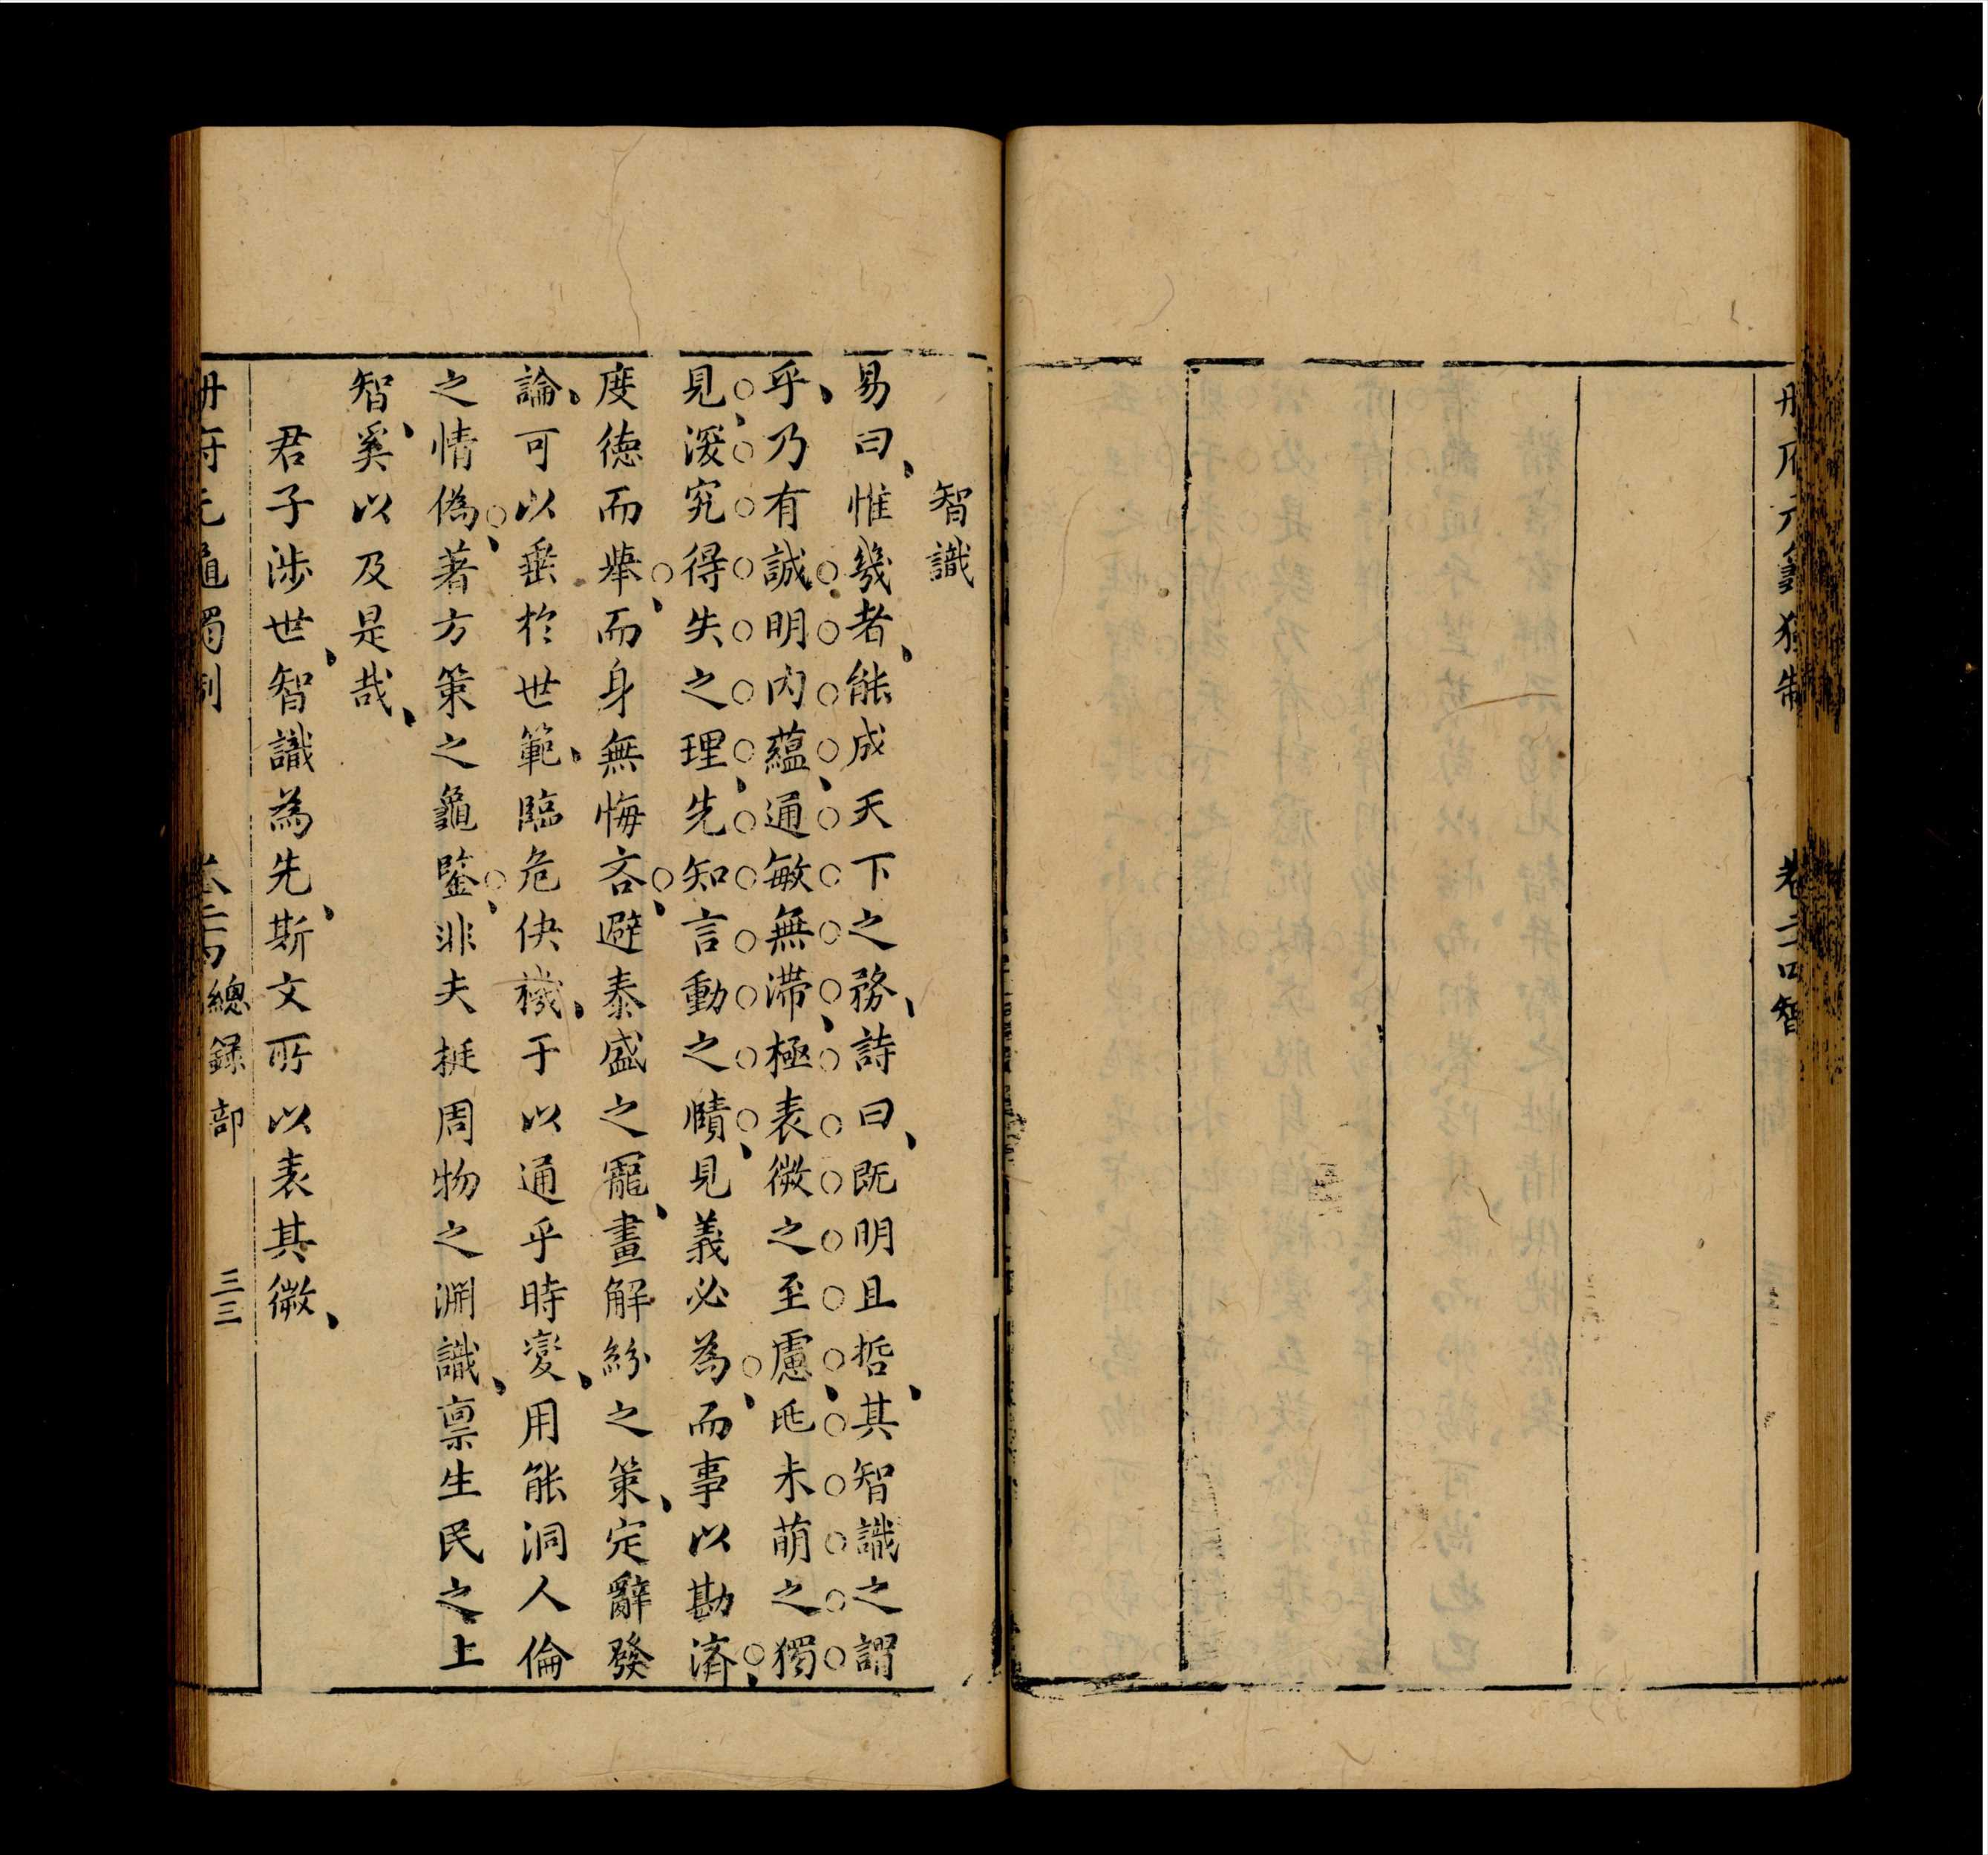 冊府元龜獨制　卷二四智
智識
易曰、惟幾者、能成天下之務、詩曰、既明且哲、其智識之謂
乎、乃有誠明内蘊、通敏無滯、極表微之至慮、眂未萌之獨
見、深究得失之理、先知言動之賾、見義必為、而事以勘濟、
度德而舉、而身無悔吝、避泰盛之寵、畫解紛之策、定辭發
論、可以垂於世範、臨危佚機、于以通乎時變、用能洞人倫
之情偽、著方策之龜鑒、非夫挺周物之淵識、禀生民之上
智、奚以及是哉、
君子涉世、智識為先、斯文所以表其微、
冊府元龜獨制　卷二四總録部　三三